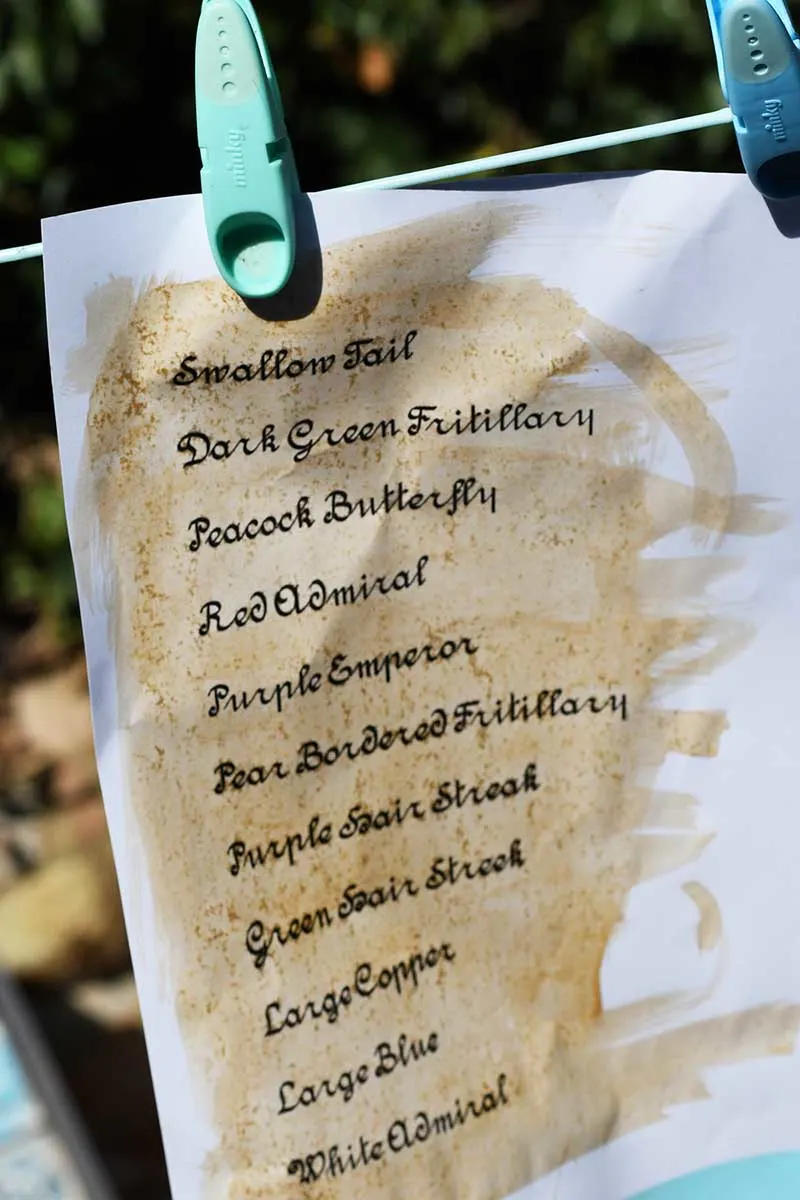 minky
minky
Swallow Tail
Dark Green Fritillary
Peacock Butterfly
Red Admiral
Purple Emperor
Pear Bordered Fritillary
Purple Hair Streak
Green Hair Streek
Large Copper
Large Blue
White Admiral